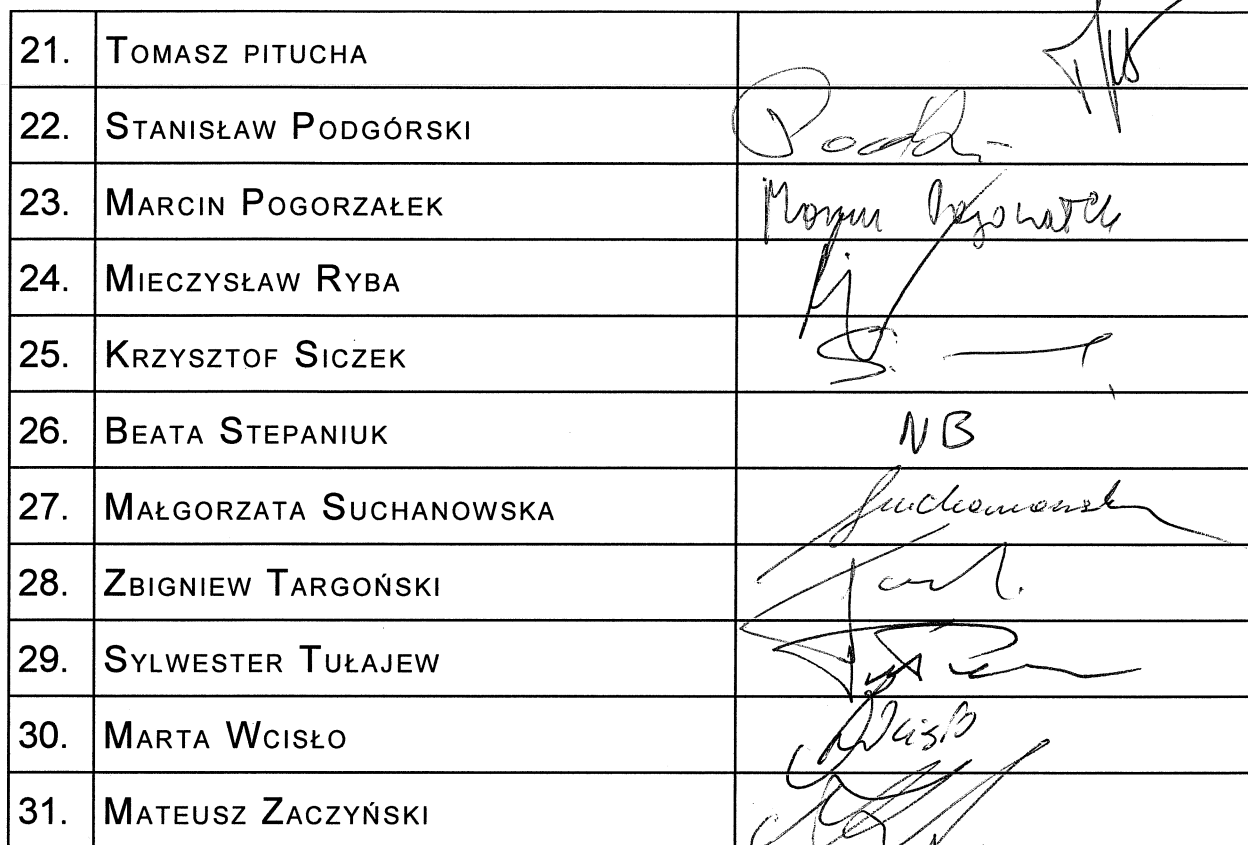 21. Tomasz pitucha
22. Stanisław Podgórski
23. Marcin Pogorzałek
24. Mieczysław Ryba
25. Krzysztof Siczek
26. Beata Stepaniuk NB
27. Małgorzata Suchanowska Suchanowska
28. Zbigniew Targoński
29. Sylwester Tułajew
30. Marta Wcisło Wcisło
31. Mateusz Zaczyński